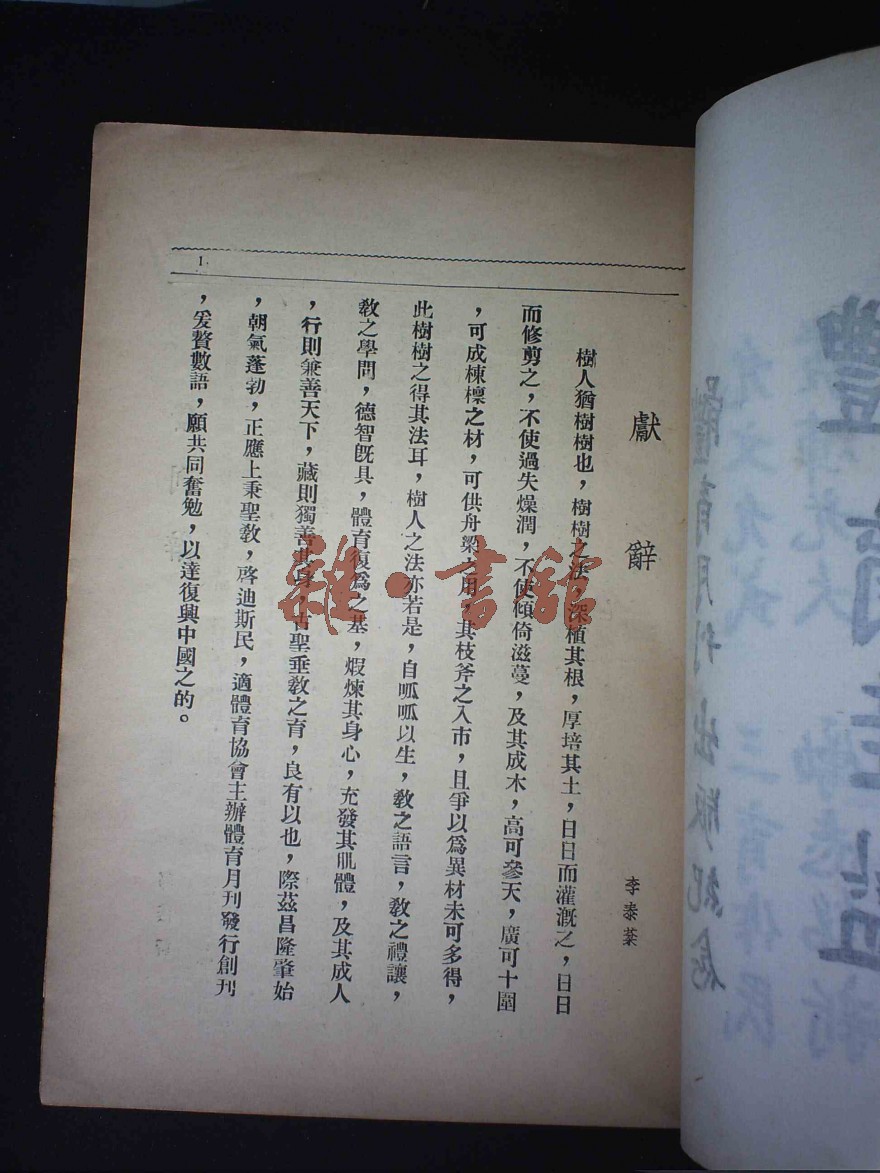 獻辭
李泰棻
樹人猶樹樹也，樹樹之法，深植其根，厚培其土，日日而灌溉之，日日
而修剪之，不使過失燥潤，不使傾倚滋蔓，及其成木，高可參天，廣可十圍
，可成棟檁之材，可供舟梁之用，其枝斧之入市，且爭以爲異材未可多得，
此樹樹之得其法耳，樹人之法亦若是，自呱呱以生，教之語言，教之禮讓，
教之學問，德智旣具，體育復爲之基，煆煉其身心，充發其肌體，及其成人
，行則兼善天下，藏則獨善其身，古聖垂教之育，良有以也，際茲昌隆肇始
，朝氣蓬勃，正應上秉聖教，啓迪斯民，適體育協會主辦體育月刊發行創刊
，爰贅數語，願共同奮勉，以達復興中國之的。
1
雜·書館
體育月刊出版紀念